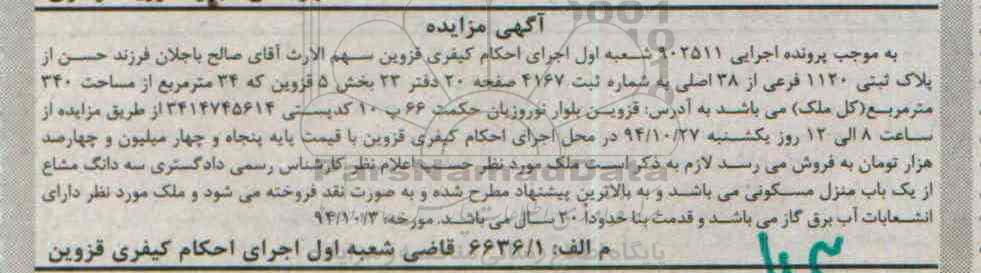 آگهی مزایده
به موجب پرونده اجرایی ۹۰۲۵۱۱ شعبه اول اجرای احکام کیفری قزوین سهم الارث آقای صالح باجلان فرزند حسن از
پلاک ثبتی ۱۱۲۰ فرعی از ۳۸ اصلی به شماره ثبت ۴۱۶۷ صفحه ۲۰ دفتر ۲۳ بخش ۵ قزوین که ۳۴ مترمربع از مساحت ۳۴۰
مترمربع(کل ملک) می باشد به آدرس: قزوین بلوار نوروزیان حکمت ۶۶ پ ۱۰ کدپستی ۳۴۱۴۷۴۵۶۱۴ از طریق مزایده از
ساعت ۸ الی ۱۲ روز یکشنبه ۹۴/۱۰/۲۷ در محل اجرای احکام کیفری قزوین با قیمت پایه پنجاه و چهار میلیون و چهارصد
هزار تومان به فروش می رسد لازم به ذکر است ملک مورد نظر حسب اعلام نظر کارشناس رسمی دادگستری سه دانگ مشاع
از یک باب منزل مسکونی می باشد و به بالاترین پیشنهاد مطرح شده و به صورت نقد فروخته می شود و ملک مورد نظر دارای
انشعابات آب برق گاز می باشد و قدمت بنا حدوداً ۲۰ سال می باشد. مورخه: ۹۴/۱۰/۳
م الف: ۶۶۳۶/۱ قاضی شعبه اول اجرای احکام کیفری قزوین
ParsNamadData